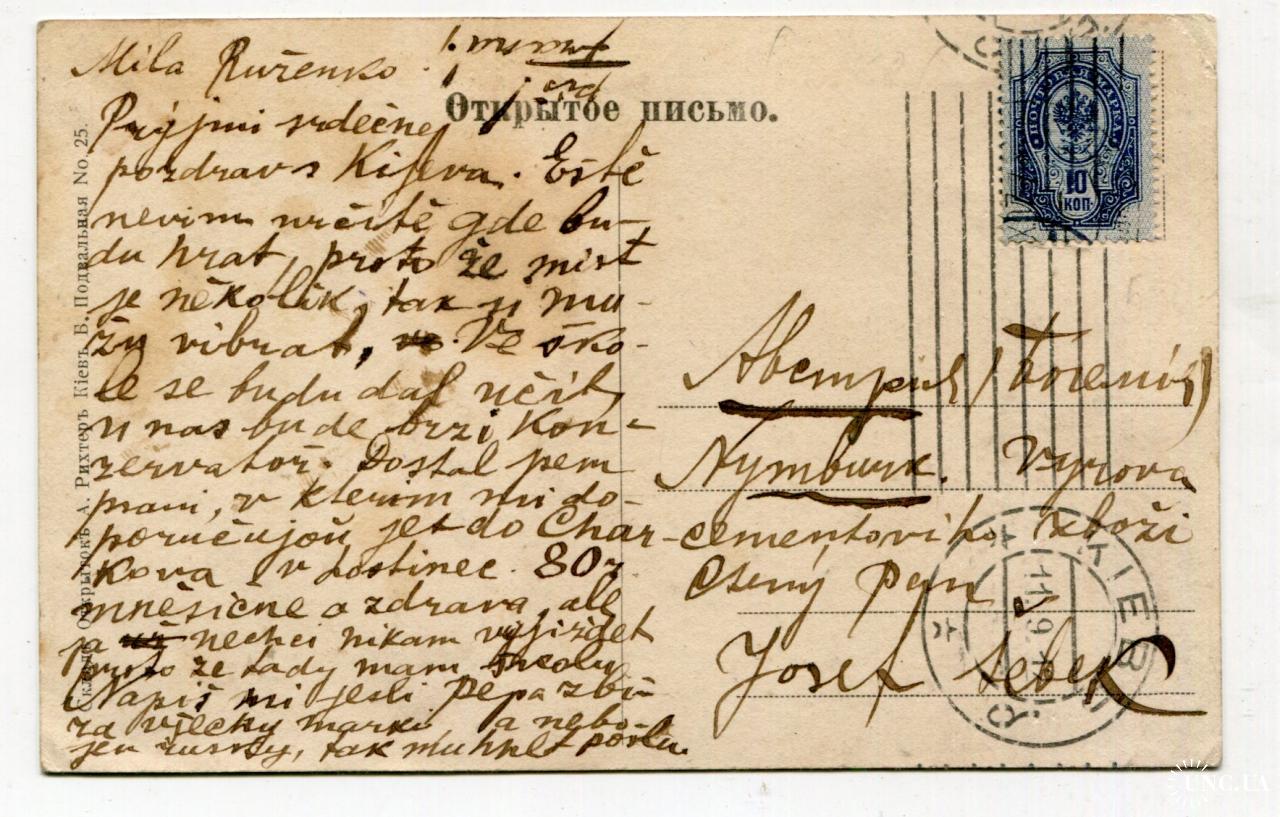 Mila Růženko.
Открытое письмо.
Přijmi srdečnej
pozdrav s Kijeva. Eště
nevim určitě gde bu-
du hrat, proto že mist
je několik, tak si mu-
žu vibrat, Ve ško-
le se budu dal učit,
u nas bude brzi Kon-
zervatoř. Dostal sem
psani, v kterim mi do-
poručujou jet do Char-
kova v hostinec. 80 r
mněsične a zdrava, ale
ja nechci nikam vyjiždet
proto že tady mam školu
Napiš mi jesli Pepa zbi-
ra všecky marki a nebo
jen rusky, tak mu hnet poslu.
Складъ открытокъ А. Рихтеръ Кіевъ Б. Подвальная No. 25.
ПОЧТОВАЯ МАРКА
10
КОП.
Австрия
Nymburk. Vyroba
cementoviho zboži
Ctený pan
Josef Šebek
КІЕВЪ
UNC.UA